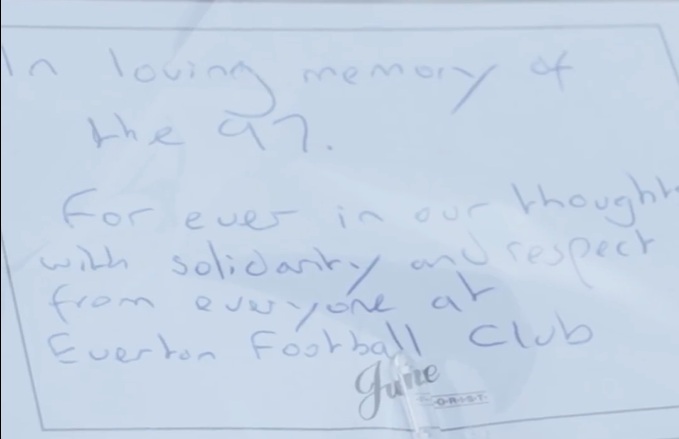 In loving memory of
the 97.
For ever in our thought
with solidarity and respect
from everyone at
Everton Football Club
June